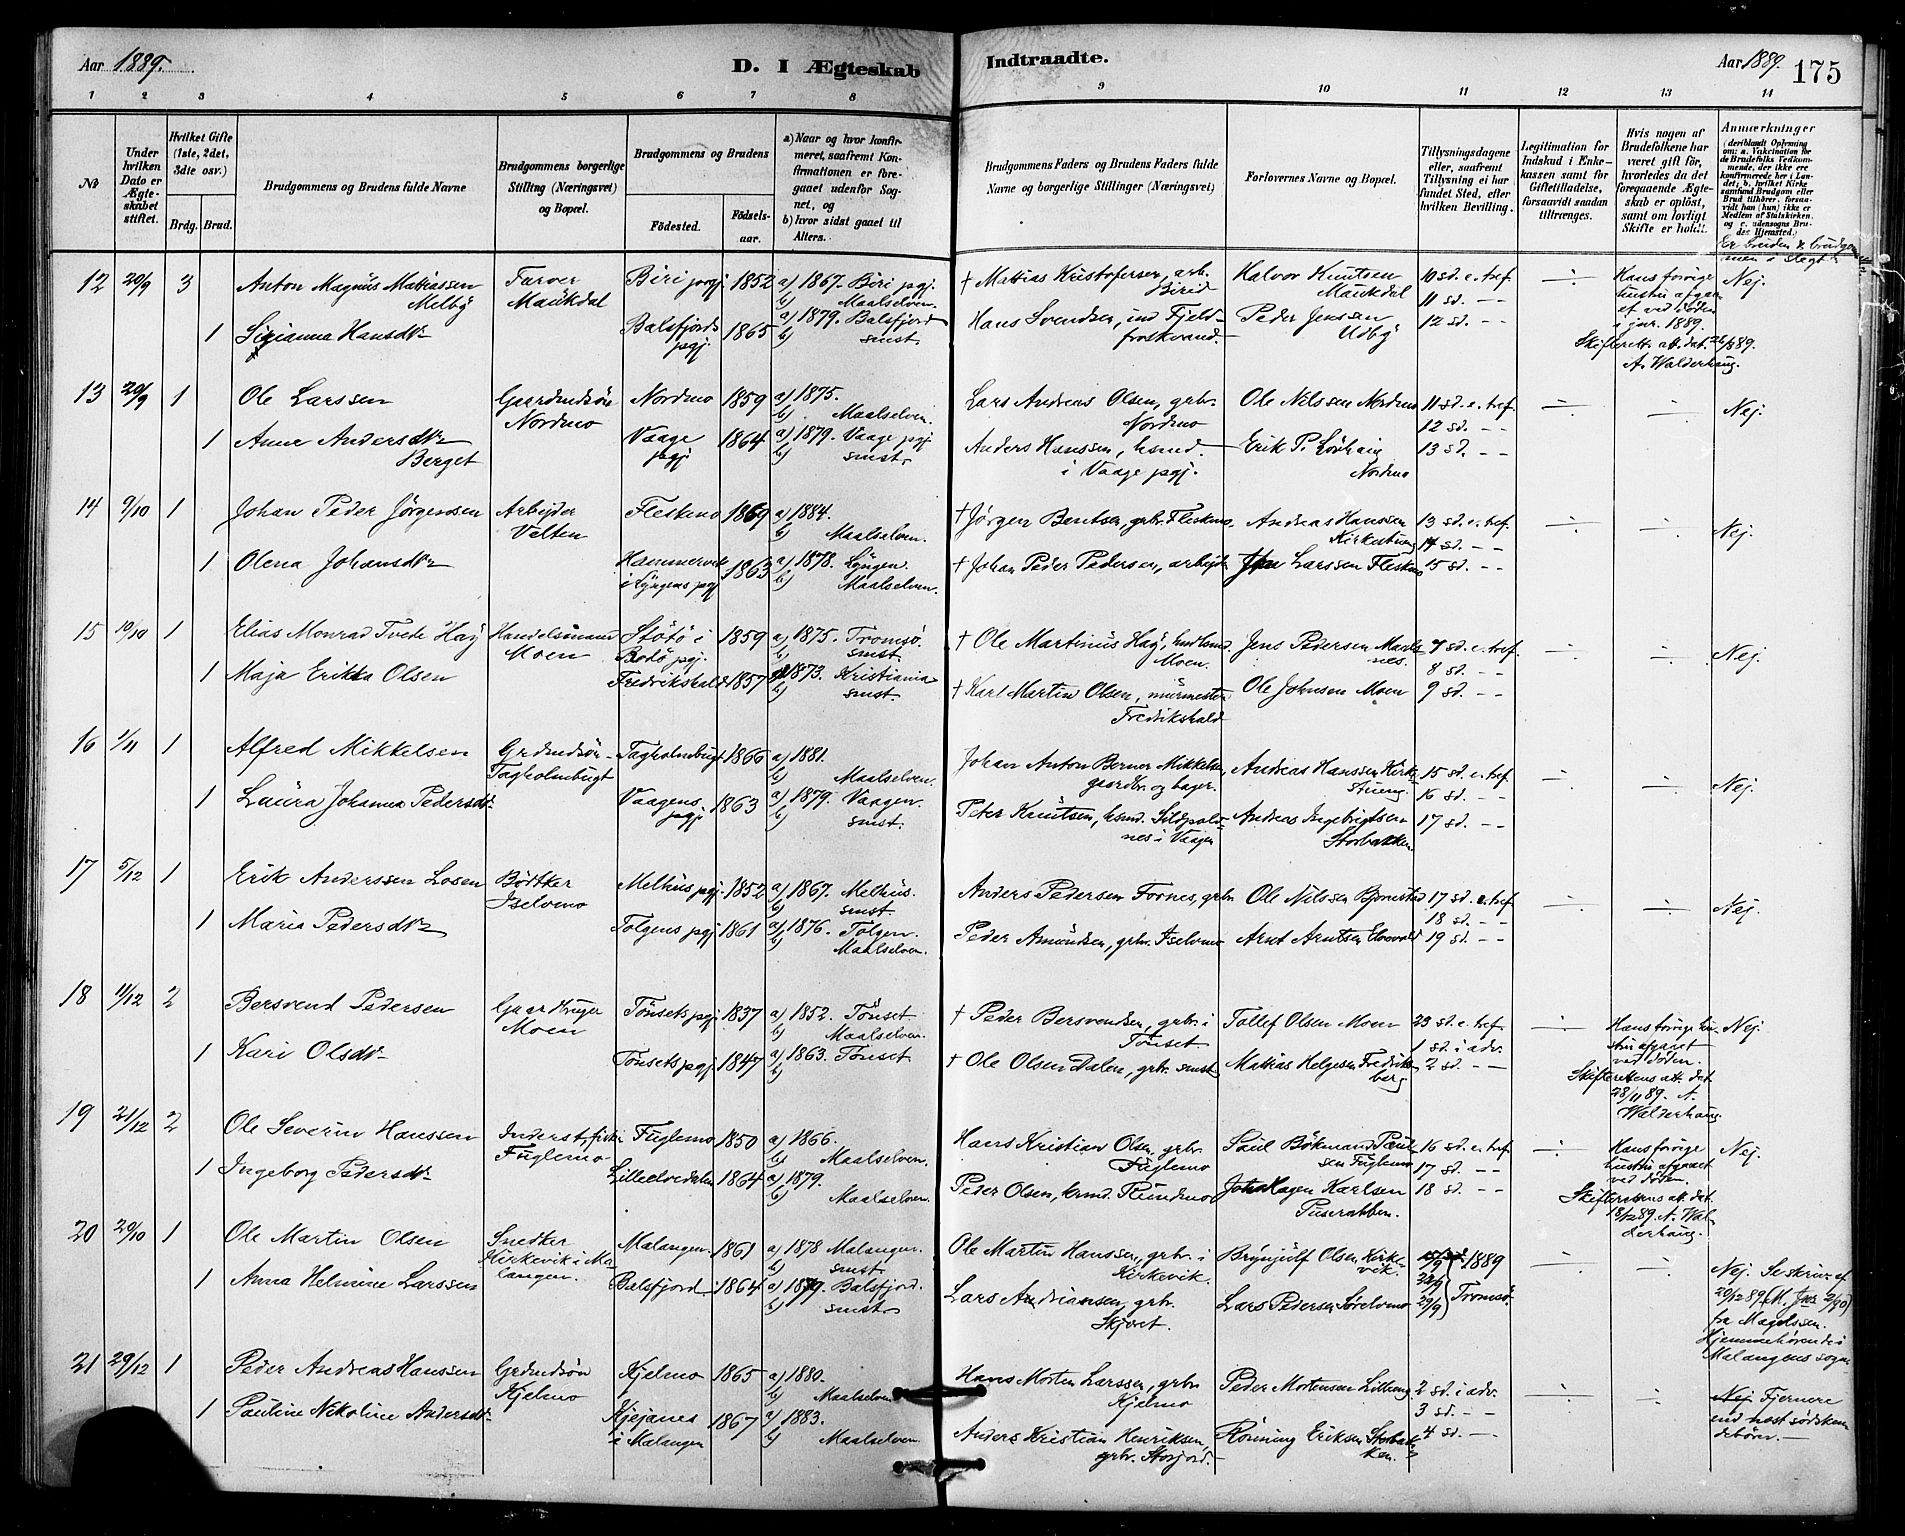 Aar 1889.
D. I Ægteskab
Indtraadte.
Aar 1889.
175
1 2 3 4 5 6 7 8 9 10 11 12 13 14
№
Under hvilken Dato er Ægteskabet stiftet.
Hvilket Gifte (1ste, 2det, 3die osv.)
Brdg. Brud.
Brudgommens og Brudens fulde Navne
Brudgommens borgerlige Stilling (Næringsvei) og Bopæl.
Brudgommens og Brudens
Fødested.
Fødselsaar.
a) Naar og hvor konfirmeret, saafremt Konfirmationen er foregaaet udenfor Sognet, og
b) hvor sidst gaaet til Alters.
Brudgommens Faders og Brudens Faders fulde Navne og borgerlige Stillinger (Næringsvei)
Forlovernes Navne og Bopæl.
Tillysningsdagene eller, saafremt Tillysning ei har fundet Sted, efter hvilken Bevilling.
Legitimation for Indskud i Enkekassen samt for Giftetilladelse, forsaavidt saadan tiltrænges.
Hvis nogen af Brudefolkene har været gift før, hvorledes da det foregaaende Ægteskab er opløst, samt om lovligt Skifte er holdt.
Anmærkninger
(deriblandt Oplysning om: a. Vakcination for de Brudefolks Vedkommende, der ikke ere konfirmerede her i Landet; b. hvilket Kirkesamfund Brudgom eller Brud tilhører, forsaavidt han (hun) ikke er Medlem af Statskirken, og c. udensogns Brudes Hjemsted.)
Er bruden & brudgommen i slegt?
12 20/9 3 Anton Magnus Mathiassen Melby Farver Maukdal Biri prgj. 1852 a) 1867. Biri pgj. b) Maalselven. † Mathias Kristofersen, arb. Birid Halvor Knutsen Maukdal 10 sd. e. tref. 11 sd. - - Hans forrige hustru afgaaet ved døden i jnr. 1889. Skifteretts att. dat. 26/8 89. A. Walderhaug. Nej.
1 Hansdtr Balsfjords pgj. 1865 a) 1879. Balsfjord b) smst. Hans Svendsen, ind Fjeldfroskvand. Peder Jenssen Udby 12 sd. - -
13 20/9 1 Ole Larssen Gaardmdsøn Nordmo Nordmo 1859 a) 1875. b) Maalselven. Lars Andreas Olsen, grbr. Nordmo Ole Nilssen Nordmo 11 sd. e. tref. 12 sd. - - Nej.
1 Anne Andersdtr Berget Vaage pgj 1864 a) 1879. Vaage pgj. b) smst. Anders Hanssen, hsmd. i Vaage pgj. Erik P. Nordmo 13 sd. - -
14 9/10 1 Johan Peder Jørgenssen Arbejder Velten Fleskmo 1869 a) 1884. b) Maalselven. † Jørgen Bentsen, grbr. Fleskmo. Andreas Hanssen Kirkestueng 13 sd. e. tref. 14 sd. - - Nej.
1 Olena Johansdtr i Lyngens pgj 1863 a) 1878. Lyngen. b) Maalselven. † Johan Peder Pedersen, arbejd. Jens Larssen Fleskmo 15 sd. - -
15 10/10 1 Elias Monrad Tvede Høy Handelsmand Moen Støtø i Bodø pgj. 1859 a) 1875. Tromsø. b) smst. † Ole Martinus Høy, Moen. Jens Pedersen 7 sd. e. tref. 8 sd. - - Nej.
1 Maja Erikka Olsen Fredrikshald 1857 a) 1873. Kristiania b) smst. † Karl Martin Olsen, murmester Fredrikshald Ole Johnsen Moen 9 sd. - -
16 1/11 1 Alfred Mikkelsen Grdmdsøn Tagholmbugt Tagholmbugt 1866 a) 1881. b) Maalselven. Johan Anton Berner Mikkelsen, gaardbr. og bager. Andreas Hanssen Kirkestueng. 15 sd. e. tref. 16 sd. - - Nej.
1 Laura Johanna Pedersdtr Vaagens pgj 1863 a) 1879. Vaagen. b) smst. Peter Knutsen, hsmd. Sildpoldnes i Vaagen Andreas Ingebrigtsen Storbakken. 17 sd. - -
17 5/12 1 Erik Anderssen Losen Bødtker Iselvmo Melhus pgj. 1852 a) 1867. Melhus. b) smst. Anders Pedersen Fornes, grbr. Ole Nilssen Bjørnstad 17 sd. e. tref 18 sd. - - Nej.
1 Maria Pedersdtr Tolgens pgj 1861 a) 1876. Tolgen. b) Maalselven. Peder Amundsen, grbr. Iselvmo Arnt Arntsen Elvevold 19 sd. - -
18 11/12 2 Bersvend Pedersen Gaardbruger Moen Tønsets pgj. 1837 a) 1852. Tønset b) Maalselven. † Peder Bersvendsen, grbr. i Tønset Tollef Olsen Moen 23 sd. e. tref. 1 sd. i adv. Hans forrige hustru afgaaet ved døden. Skifterettens att. dat. 28/11 89. A. Walderhaug. Nej.
1 Kari Olsdtr Tønsets pgj. 1847 a) 1863. Tønset b) † Ole Olsen Dalen, grbr. smst. Mathias Helgesen Fredriksberg 2 sd. - -
19 21/12 2 Ole Severin Hanssen Inderst, fisker Fuglemo Fuglemo 1850 a) 1866. b) Maalselven. Hans Kristian Olsen, grbr. Fuglemo Paul Bökmand Paulsen Fuglemo 16 sd. e. tref 17 sd. - - Hans forrige hustru afgaaet ved døden. Skifterettens att. dat. 18/12 89. A. Walderhaug. Nej.
1 Ingeborg Pedersdtr Lilleelvedalen 1864 a) 1879. b) Maalselven. Peder Olsen, hsmd. Rundmo Johan Hagen Karlsen 18 sd. - -
20 20/10 1 Ole Martin Olsen Snedker Kirkevik i Malangen. Malangen. 1861 a) 1878 Malangen. b) smst. Ole Martin Hanssen, grbr. i Kirkevik. Brynjulf Olsen Kirkevik. 15/9 22/9 29/9 1889 Tromsø. Nej. Se skriv. af 20/12 89 (M. Jnr. 2/90) fra Magelssen. Hjemmehørende i Malangens sogn
1 Anna Helmine Larssen Balsfjord 1864 a) 1879. Balsfjord. b) smst. Lars Andriansen, grbr. Skjæret. Lars Pedersen Sørelvmo
21 29/12 1 Peder Andreas Hanssen Grdmdsøn Kjelmo Kjelmo 1865 a) 1880. b) Maalselven Hans Morten Larssen, grbr. Kjelmo Peder Mortensen 2 sd. i adv. 3 sd. - - Nej Fjernere end næst sødskendebörn.
1 Pauline Nikoline Andersdtr i Malangen 1867 a) 1883. b) Maalselven. Anders Kristian Henriksen, grbr. Storjord. Rönning Eriksen Storbakken. 4 sd. - -